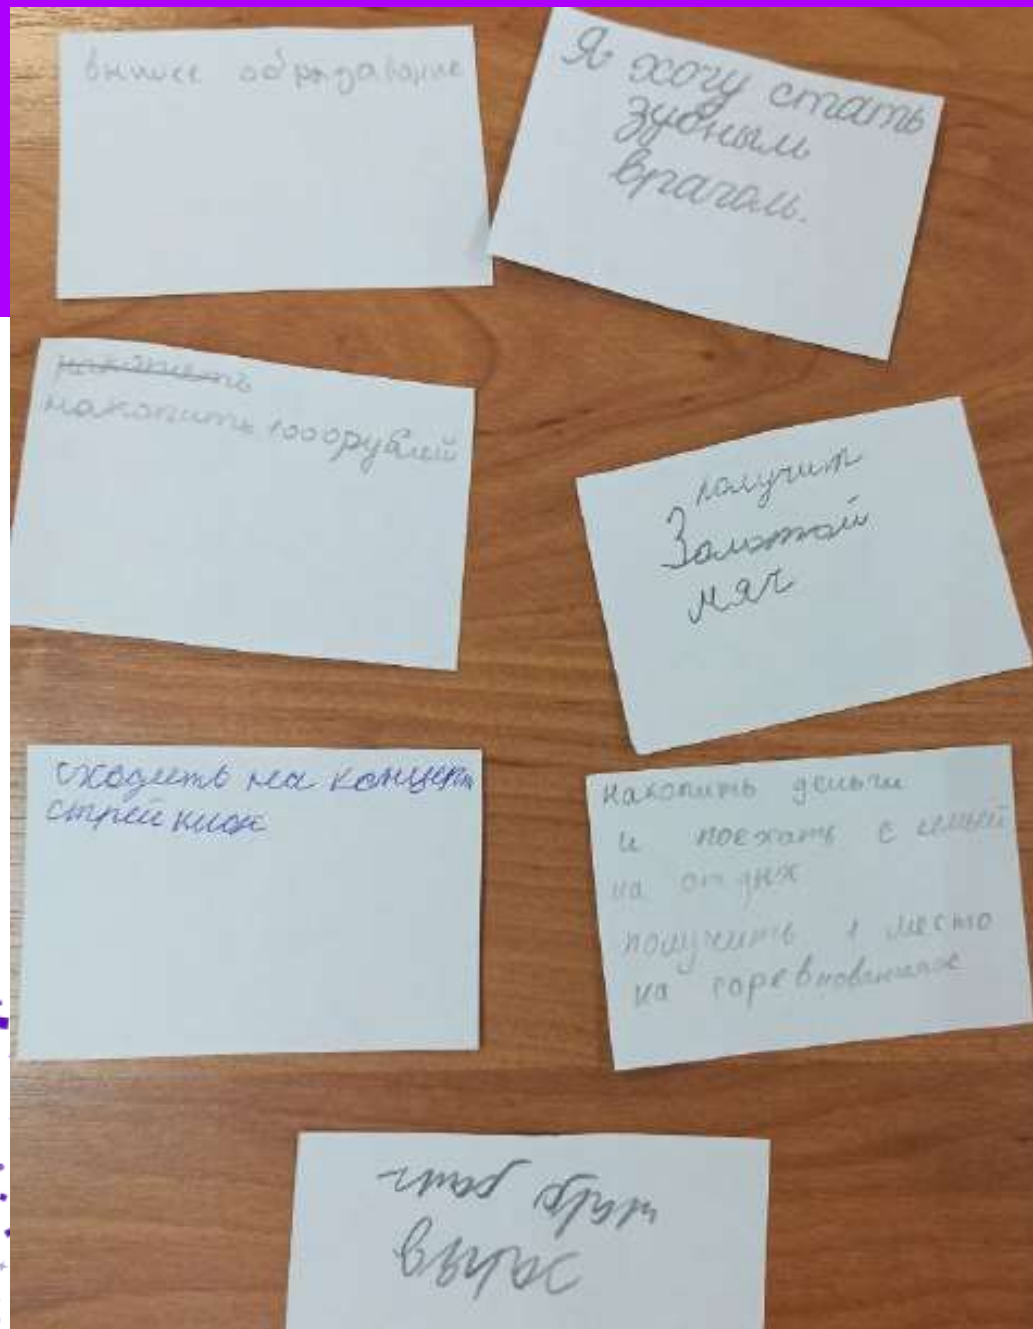 вышее образавание
Я хочу стать
зубным
врачом.
накопить
накопить 1000рублей
получит
Золотой
мяч
сходить на концерт
стрей кидс
накопить деньги
и поехать с семьей
на отдых
получить 1 место
на соревнованиях
вырос